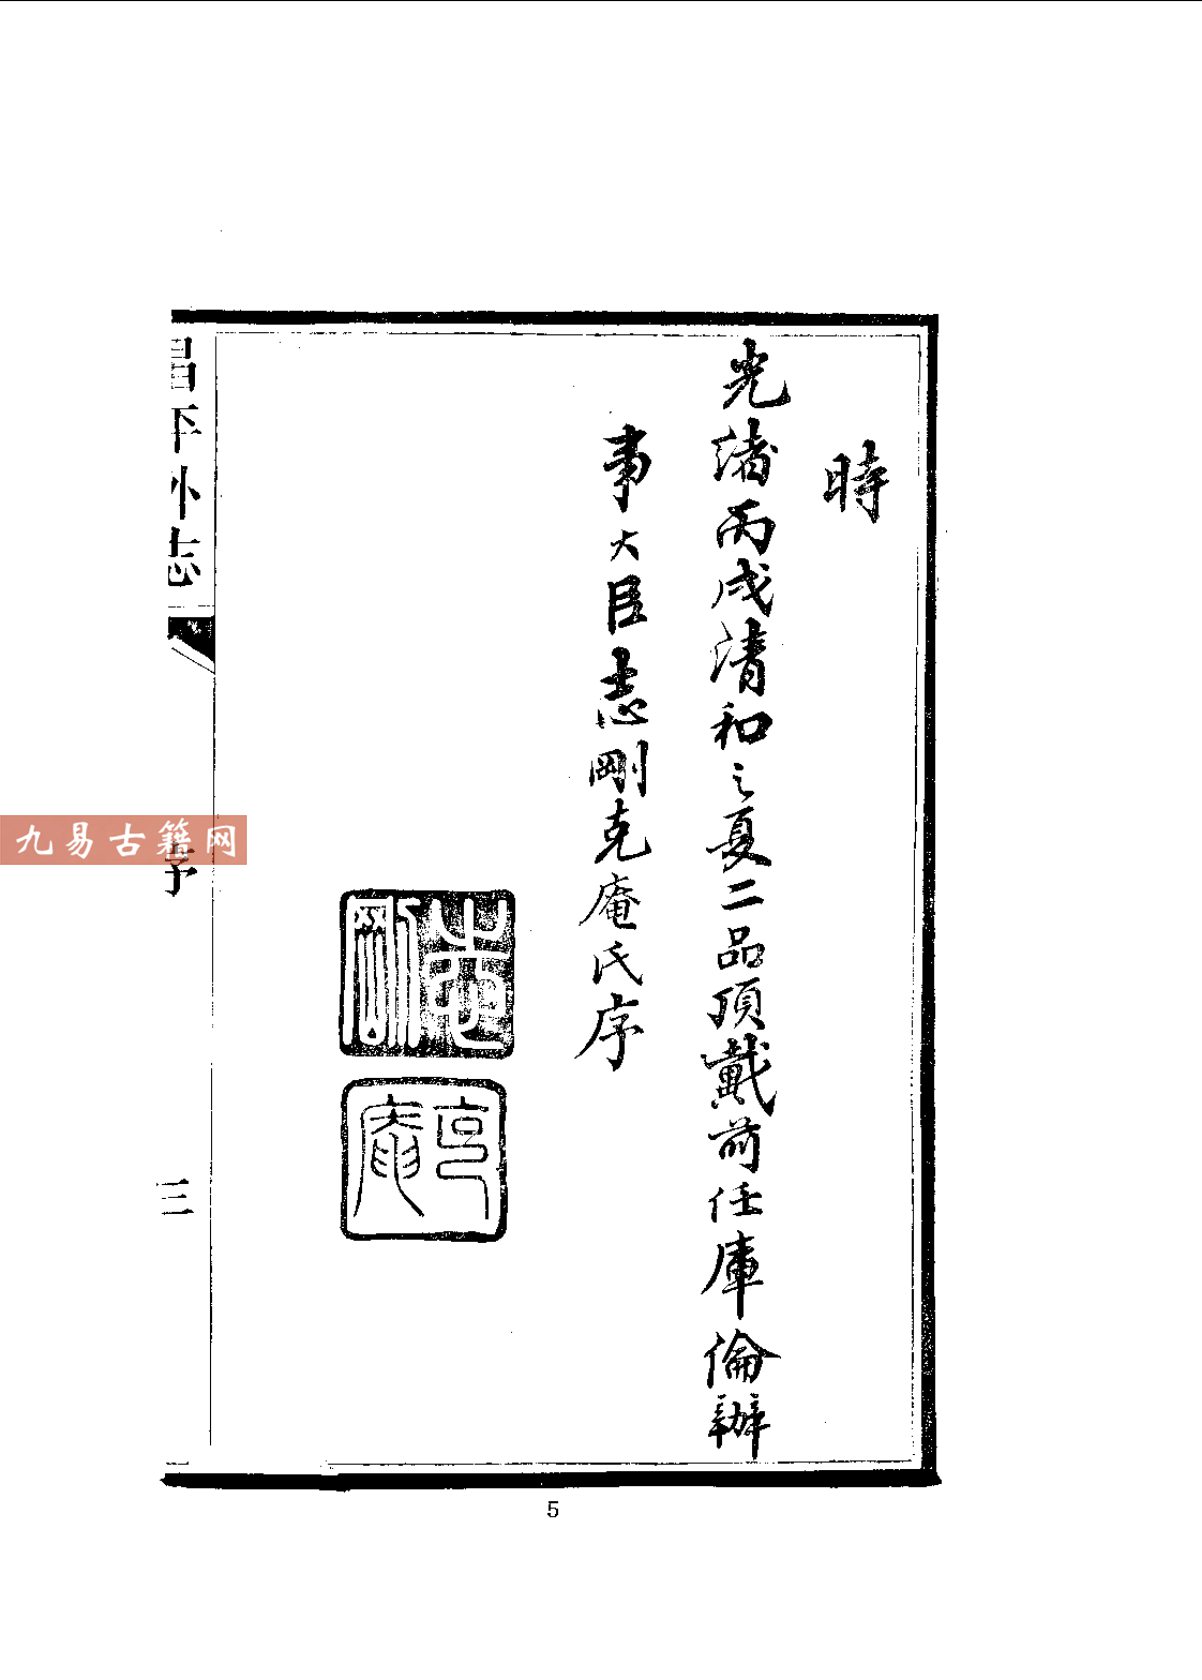 時
光緒丙戌清和之夏二品頂戴前任庫倫辦
事大臣志剛克庵氏序
志剛
克庵
昌平外志
序
三
九易古籍网
5